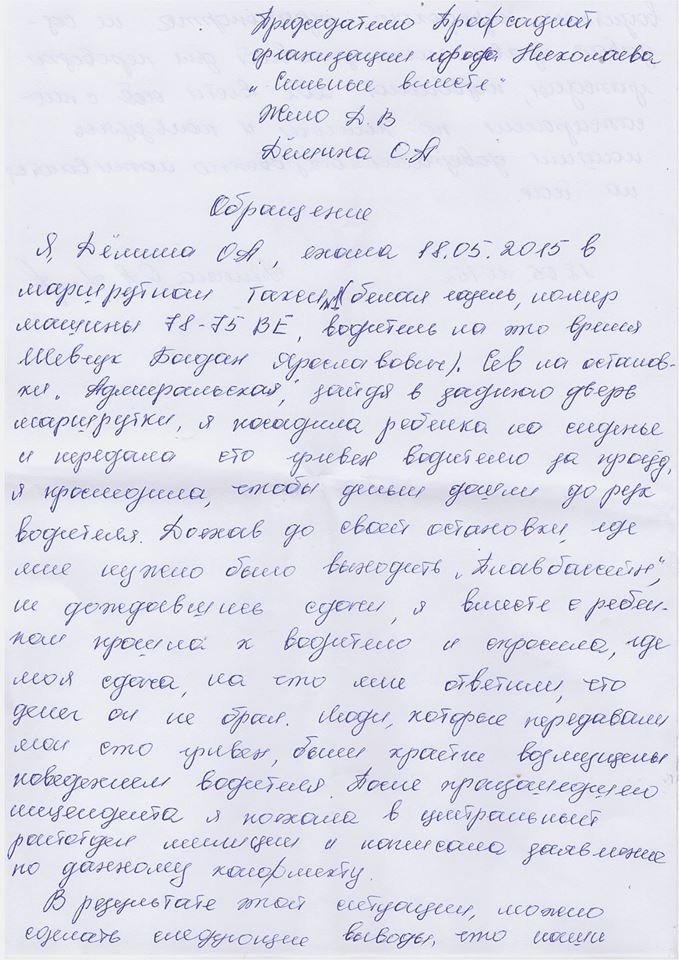 Председателю Профсоюзной
организации города Николаева
„Сильные вместе"
Жело Д.В
Дёмина О.А.
Обращение
Я, Дёмина О.А., ехала 18.05.2015 в
маршрутном такси №1 (белая газель, номер
машины 78-75 ВЕ, водитель на это время
Шевчук Богдан Ярославович). Сев на останов-
ки „Адмиральская", зайдя в заднюю дверь
маршрутки, я посадила ребенка на сиденье
и передала сто гривен водителю за проезд,
я проследила, чтобы деньги дошли до рук
водителя. Доехав до своей остановки, где
мне нужно было выходить „Плавбассейн",
не дождавшись сдачи, я вместе с ребен-
ком прошла к водителю и спросила, где
моя сдача, на что мне ответили, что
денег он не брал. Люди, которые передавали
мои сто гривен, были крайне возмущены
поведением водителя. После произошедшего
инцендента я поехала в центральный
райотдел милиции и написала заявление
по данному конфликту.
В результате этой ситуации, можно
сделать следующие выводы, что наши